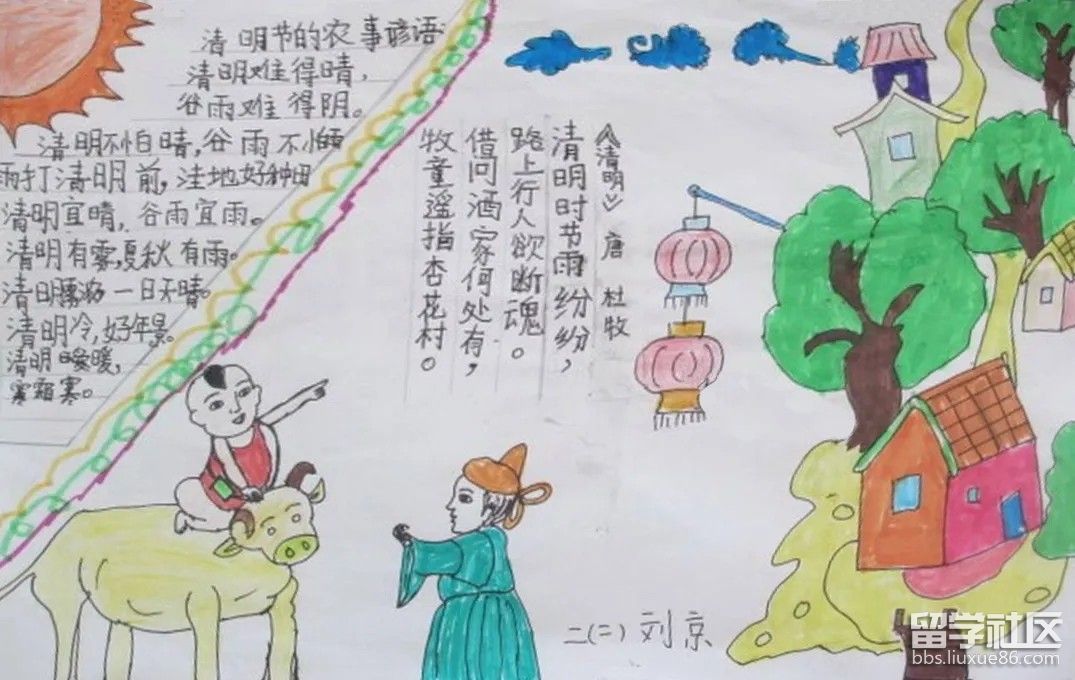 清明节的农事谚语
清明难得晴，
谷雨难得阴。
清明不怕晴，谷雨不怕雨
雨打清明前，洼地好种田
清明宜晴，谷雨宜雨。
清明有雾，夏秋有雨。
清明雾浓一日天晴。
清明冷，好年景。
清明暖，
寒霜寒。
《清明》 唐 杜牧
清明时节雨纷纷，
路上行人欲断魂。
借问酒家何处有，
牧童遥指杏花村。
二(二) 刘京
留学社区
bbs.liuxue86.com